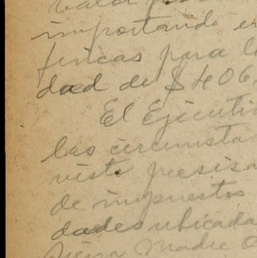 valor
importando e
fincas para l
dad de $406,
El Ejecuti
las circunstan
viste precisa
de impuestos
dades ubicada
Sierra Madre O